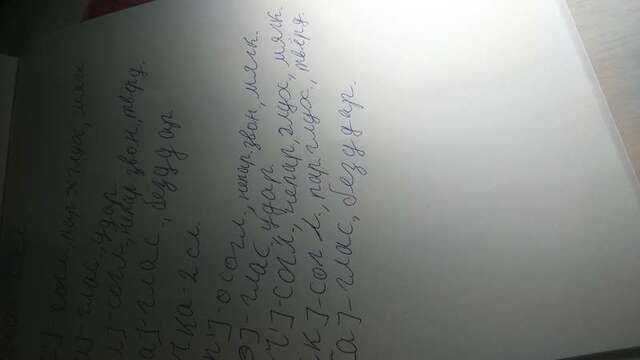 ] - согл., пар. глух., мягк.
] - глас., удар.
] - согл., непар. звон., тверд.
а] - глас., безудар.
чка - 2 сл.
] - согл., непар. звон., мягк.
] - глас., удар.
ч'] - согл., непар., глух., мягк.
[к] - согл., пар. глух., тверд.
[а] - глас., безудар.